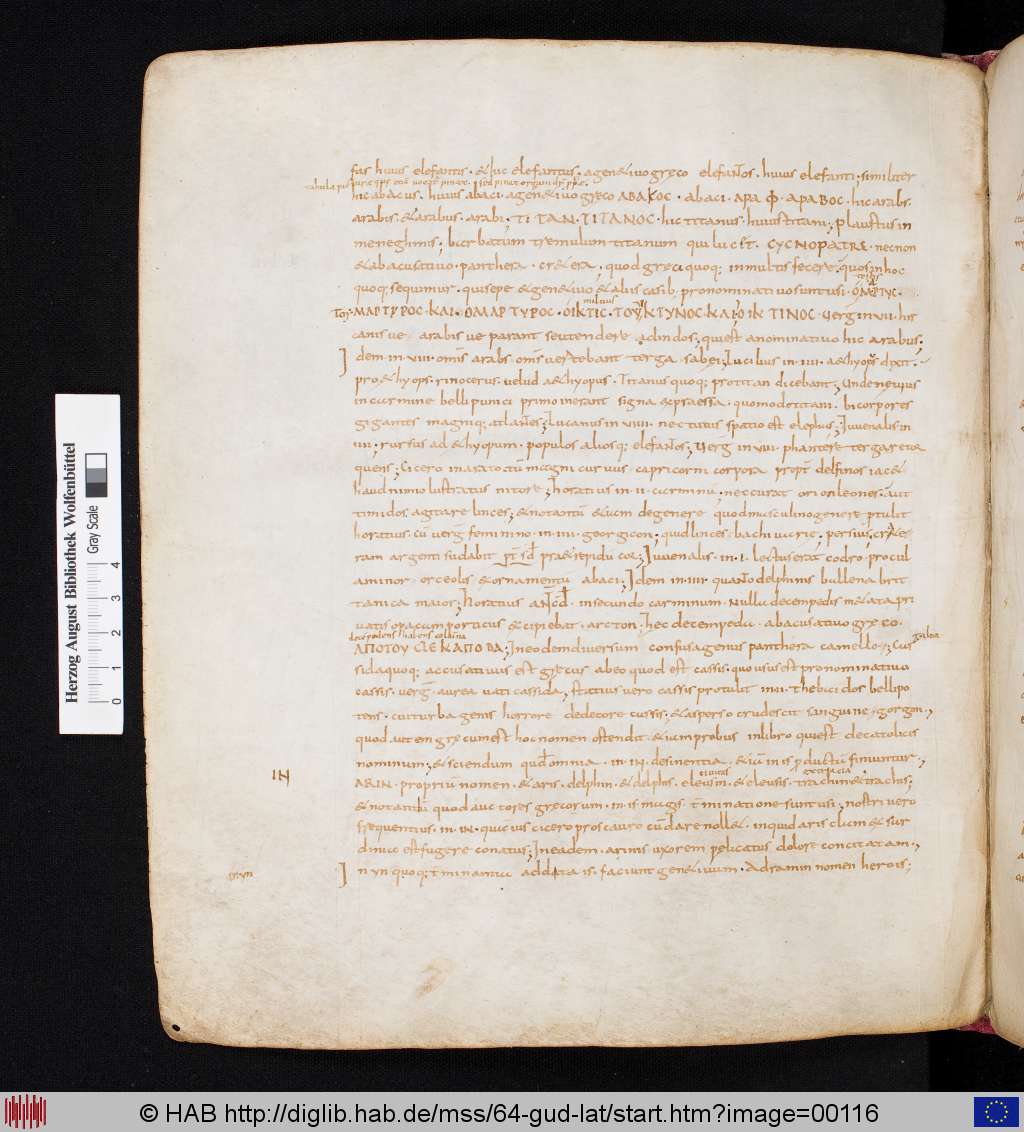 fas huius elefantis · & hic elefantus · a gen&iuo greco elefantos · huius elefanti; similiter
hic abacus · huius abaci · a gen&iuo greco ΑΒΑΚΟC · abaci · ΑΡΑΨ · ΑΡΑΒΟC · hic arabs ·
arabis · & arabus · arabi; ΤΙΤΑΝ · ΤΙΤΑΝΟC · hic titanus · huius titani; plaustus in
meneghmis; barbatum tremulum titanum qui luc · CYCNO PATRE · necnon
& ab acusatiuo · panthera · cr&era, quod greci quoq; in multis fecere, quos in hoc
quoq; sequimur · qui sepe & gen&iuo & aliis casib; pro nominatiuo sunt usi · Ο ΜΑΡΤΥC ·
ΤΟΥ ΜΑΡΤΥΡΟC · ΚΑΙ · Ο ΜΑΡΤΥΡΟC · Ο ΙΚΤΙC · ΤΟΥ ΙΚΤΙΝΟC ΚΑΙ Ο ΙΚΤΙΝΟC · Uerg in VII · his
milvus
canis ue · arabis ue parant seu tendere · acindos; qui est a nominatiuo hic arabus;
Idem in VIII · omnis arabs omnes uertebant terga sabei; Lucilius in IIII · a&hyops dixit ·
pro, &hyops · rinocerus · uelud a&hyopus · Titanus quoq; pro titan dicebant; Unde neuius
in carmine belli punici primo inerant signa expressa · quomodo titani · bicorpores
gigantes magniq; atlantes; Lucanus in VIIII · nec tutus spatio est elephas; Iuuenalis in
IIII · rursus ad &hyopum · populos aliosq; elefantos; Uerg in VIII · phantere terga r&or
quens; Cicero in arato cum magni curuus · capricorni corpora propter delfinus iac&
haud nimio lustratus nitore; horatius in II · carminum; nec curat orion leones · aut
timidos agitare linces; & notandum & iam de genere quod masculino genere protulit
horatius cum uerg feminino · in IIII · georgicon; quid linces · bachi uarie; persius, cr&er
ram argenti sudabit
Iuuenalis · in · I · lectus erat codro · procul
a minor · orceolis & ornamentum abaci; Idem in IIII · quanto delphinis ballena brit
tanica maior; Horatius in secundo carminum · Nulla decempedis m&ata pri
uatis opacam porticus excipiebat · arcton; hec decempeda · ab acusatiuo greco ·
ΑΠΟ ΤΟΥ ΔΕΚΑΠΟΔΑ; In eodem diuersum confusa genus panthera camello; Cas
sida quoq; accusatiuus est grecus ab eo quod est cassis · quo usus est pro nominatiuo
cassis · uerg aurea uati cassida, statius uero cassis protulit in · thebaidos bellipo
tens · cui turba genis horrore dedecore cassis · & asperso crudescit sanguine gorgon;
quod autem grecum est hoc nomen ostendit &iam probus in libro qui est de catolicis
nominum; & sciendum quod omnia · in · IN · desinentia, &iam in is producta finiuntur;
ARIN · proprium nomen · & aris, delphin · & delphis, eleusin · & eleusis · trachin & trachis;
& notandum quod auctores grecorum · in · is magis terminatione sunt usi, nostri uero
frequentius · in · IN · quamuis cicero pro scauro cum dare noll& · inquid aris clam ex sar
dinia est fugere conatus; In eadem · arinis uxorem pelicatus dolore concitatam;
In yn quoq; terminantia addita is · faciunt gen&iuum · Adramin nomen herois;
IN
© HAB http://diglib.hab.de/mss/64-gud-lat/start.htm?image=00116
Herzog August Bibliothek Wolfenbüttel
Gray Scale
0 1 2 3 4